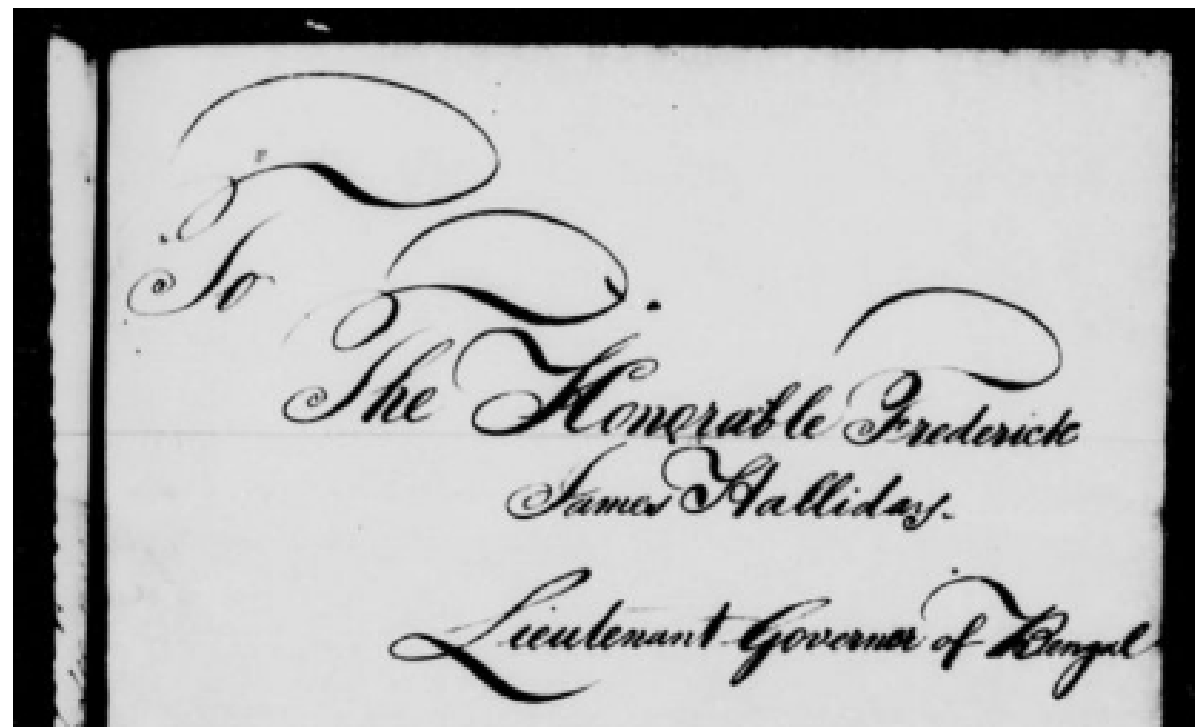 To
The Honorable Frederick
James Halliday.
Lieutenant Governor of Bengal